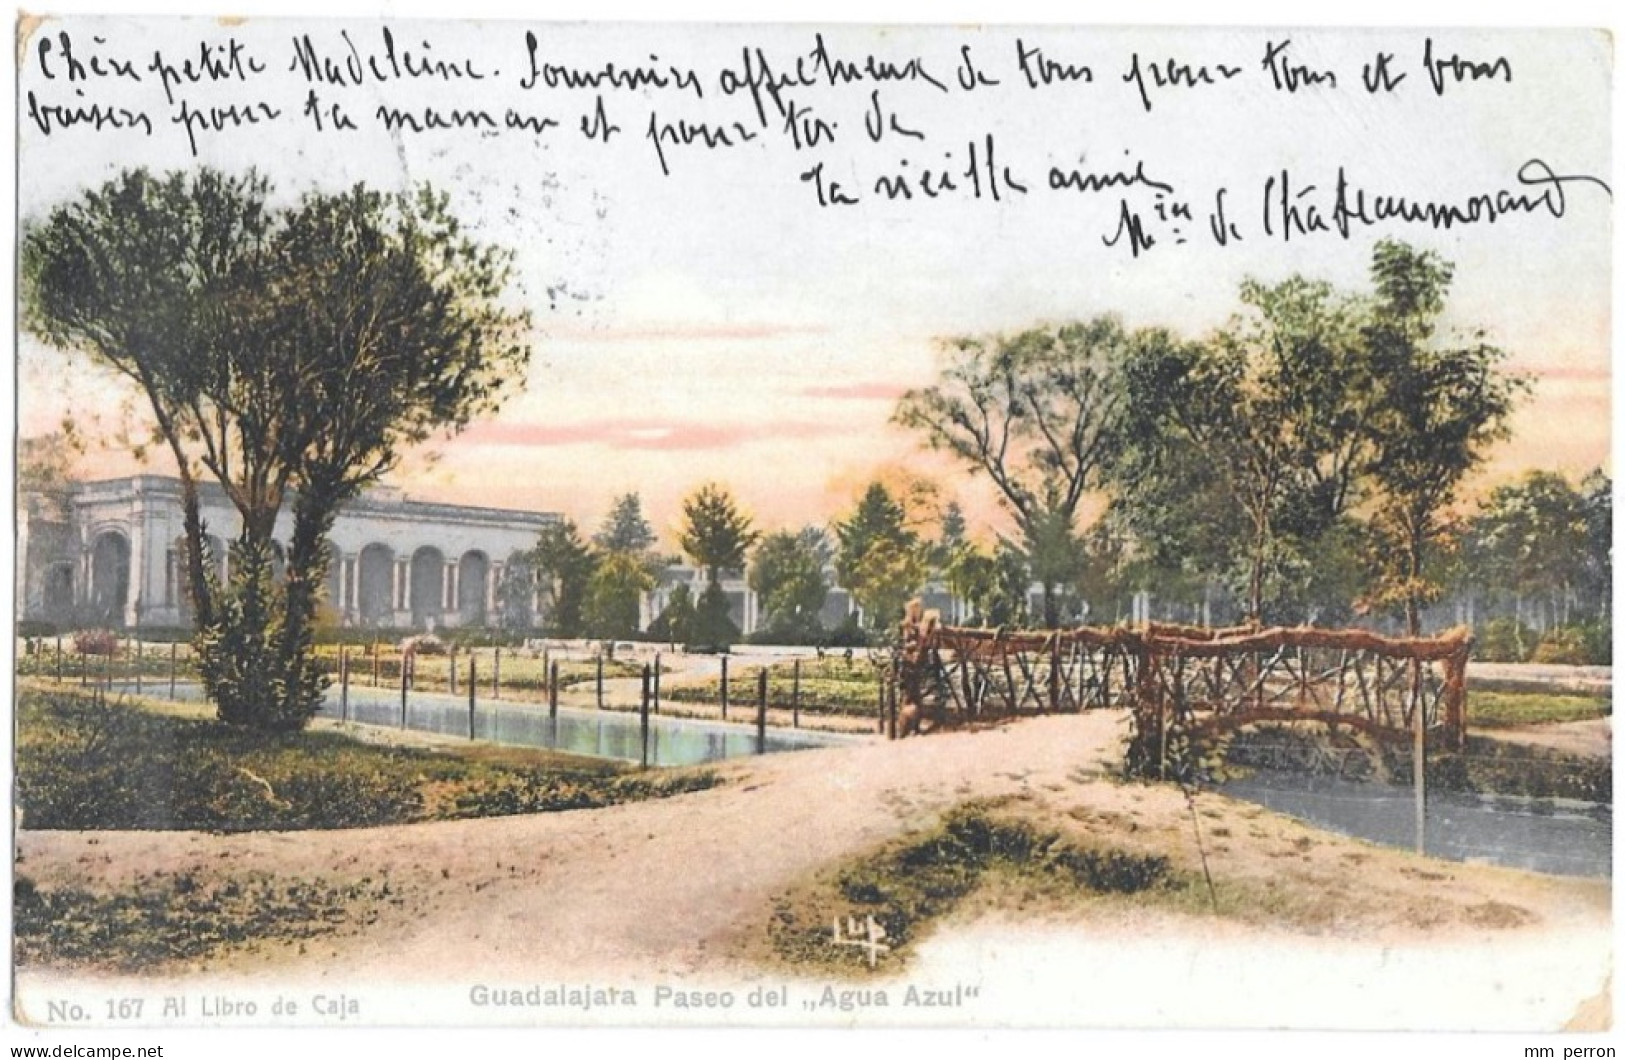 Chère petite Madeleine. Souvenirs affectueux de tous pour tous et bons
baisers pour ta maman et pour toi de
ta vieille amie
Mise de Châteaumorand
No. 167 Al Libro de Caja
Guadalajara Paseo del „Agua Azul“
mm perron